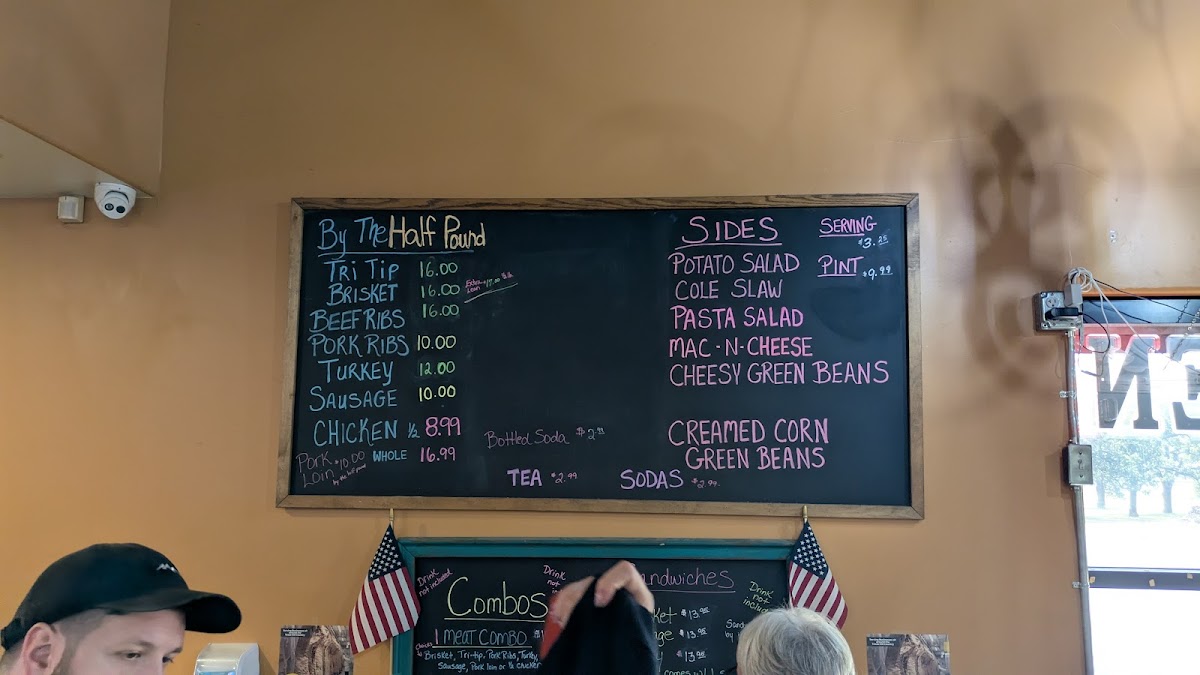 By The Half Pound
Tri Tip 16.00
Brisket 16.00
Beef Ribs 16.00
Pork Ribs 10.00
Turkey 12.00
Sausage 10.00
Chicken ½ 8.99
Whole 16.99
Pork Loin $10.00
by the half pound
Bottled Soda $2.99
Tea $2.99
Sodas $2.99
Sides
Potato Salad
Cole Slaw
Pasta Salad
Mac-N-Cheese
Cheesy Green Beans
Creamed Corn
Green Beans
Serving
$3.25
Pint
$9.99
Drink
not included
Combos
1 Meat Combo
Brisket, Tri-tip, Pork Ribs, Turkey
Sausage, Pork loin or ½ Chicken
Drink
not
Sandwiches
$13.95
$13.95
Drink
not
EN